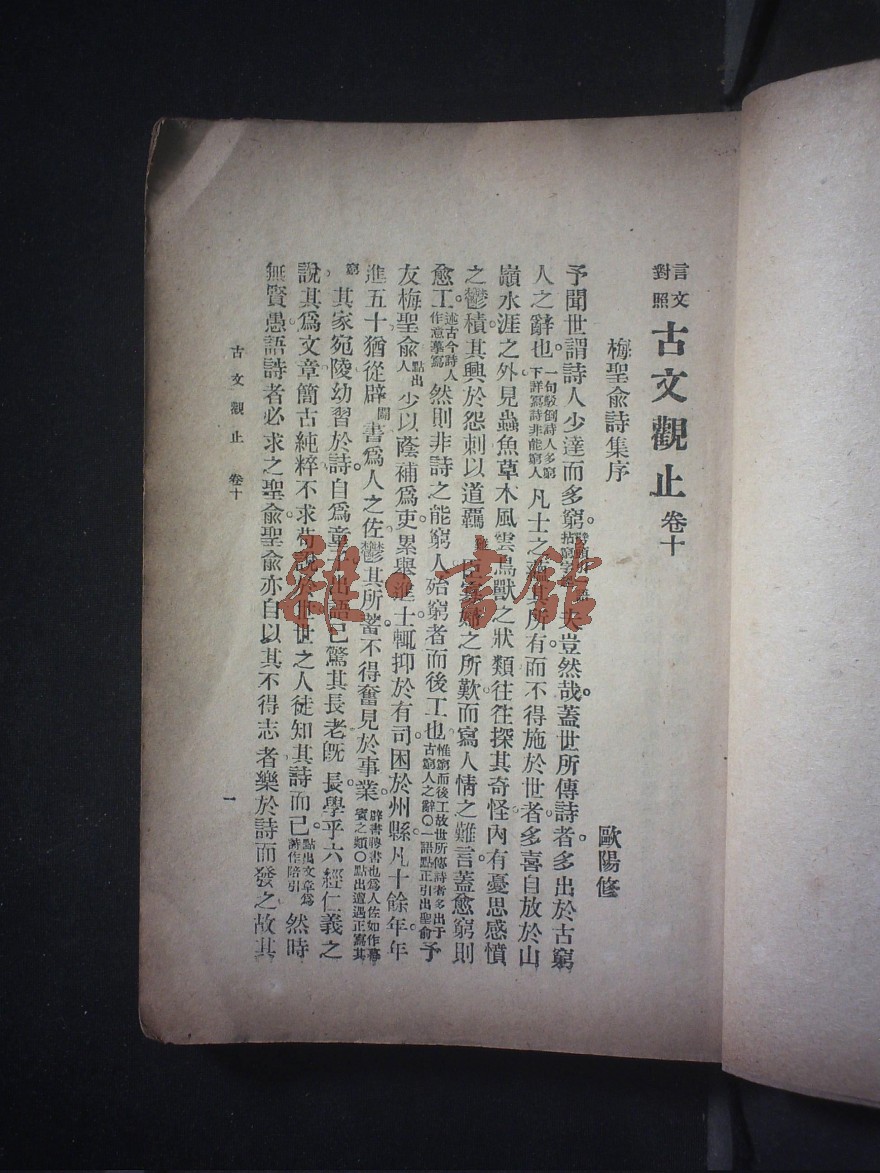 言文對照 古文觀止 卷十
梅聖俞詩集序 歐陽修
予聞世謂詩人少達而多窮。夫豈然哉。蓋世所傳詩者多出於古窮
人之辭也。一句駁倒詩人多窮下詳寫詩非能窮人凡士之 其所有而不得施於世者多喜自放於山
巔水涯之外見蟲魚草木風雲鳥獸之狀類往往探其奇怪內有憂思感憤
之鬱積其興於怨刺以道羈 之所歎而寫人情之難言蓋愈窮則
愈工。述古今詩人作意摹寫然則非詩之能窮人殆窮者而後工也。惟窮而後工故世所傳詩者多出于古窮人之辭〇一語點正引出聖俞予
友梅聖俞點出人少以蔭補爲吏累舉進士輒抑於有司困於州縣。凡十餘年年
進五十猶從辟書爲人之佐鬱其所蓄不得奮見於事業。辟書聘書也爲人佐如作幕賓之類〇點出遭遇正寫其
窮。其家宛陵幼習於詩。自爲童子出語已驚其長老旣長學乎六經仁義之
說其爲文章簡古純粹不求苟說於世世之人徒知其詩而已。點出文章爲著作陪引然時
無賢愚語詩者必求之聖俞。聖俞亦自以其不得志者樂於詩而發之故其
古文觀止 卷十 一
雜·書館